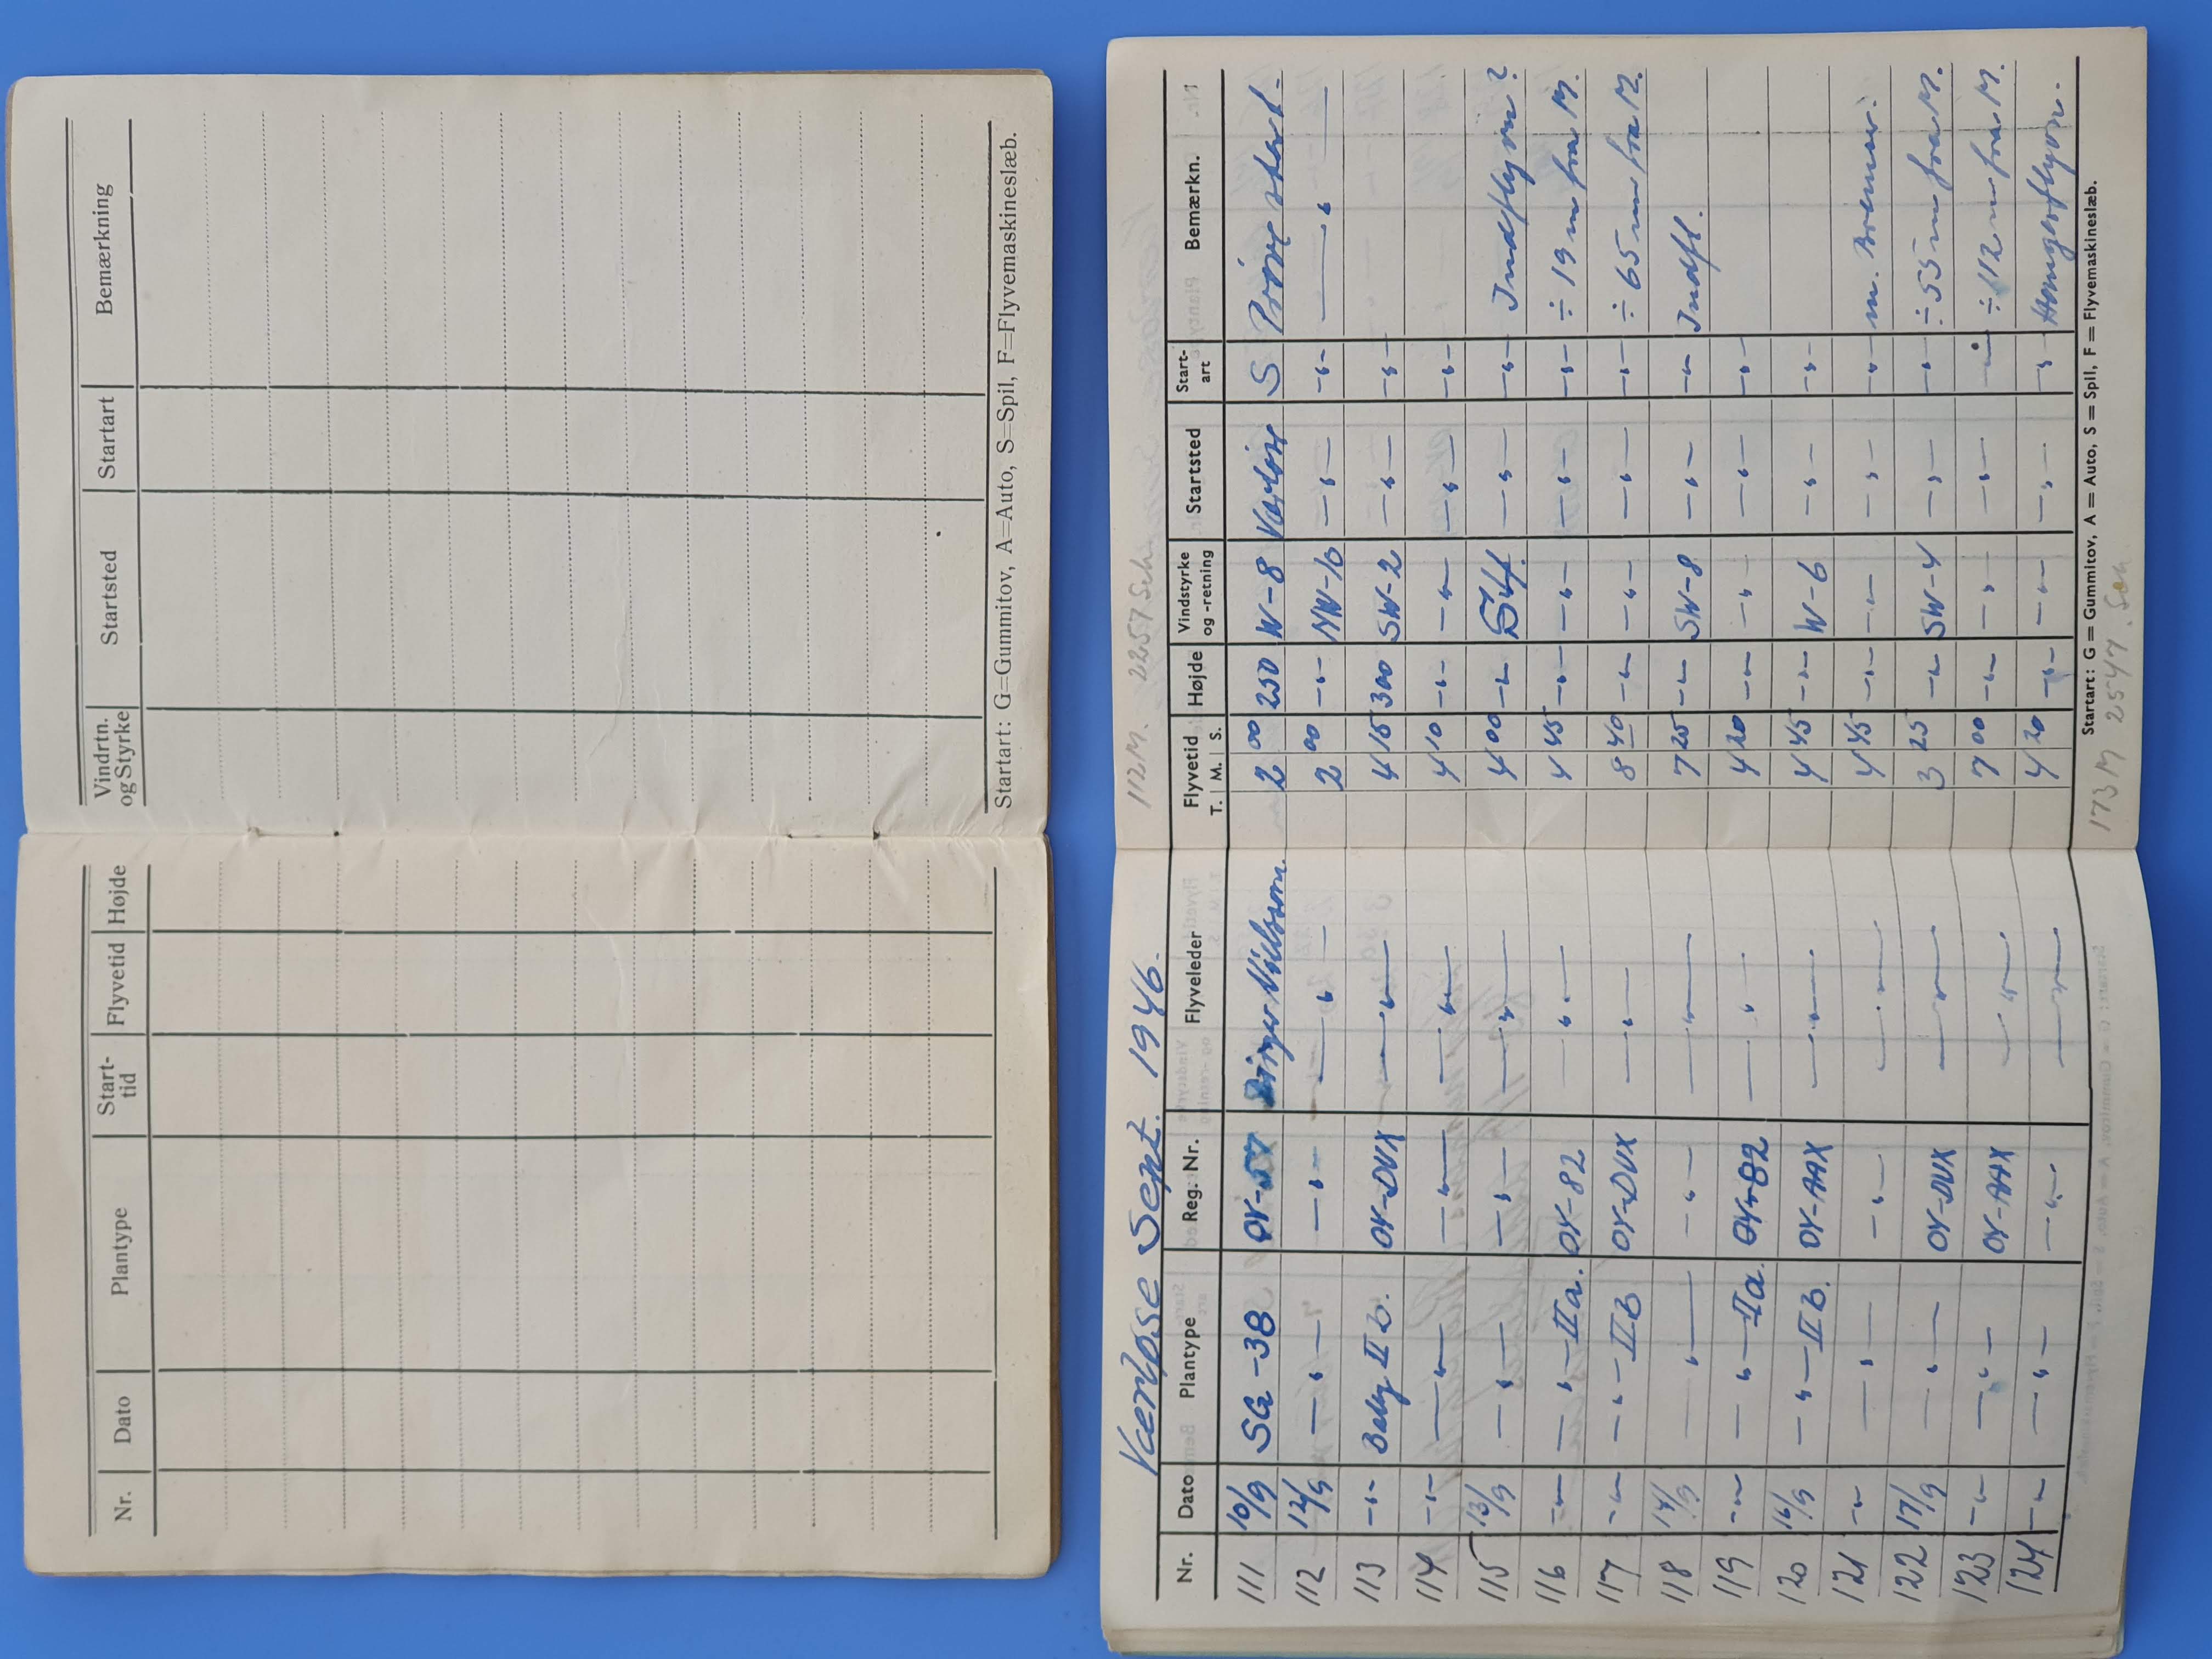 Nr. Dato Plantype Start-tid Flyvetid Højde Vindrtn. og Styrke Startsted Startart Bemærkning
Startart: G=Gummitov, A=Auto, S=Spil, F=Flyvemaskineslæb.
Værløse Sept. 1946. 112 M. 2257 Sek.
Nr. Dato Plantype Reg. Nr. Flyveleder Flyvetid T. M. S. Højde Vindstyrke og -retning Startsted Start-art Bemærkn.
111 10/9 SG-38 OY-57 Nielsson. 2 00 250 W-8 Værløse S Prøve start.
112 12/9 —"— —"— —"— 2 00 —"— NW-10 —"— —"— —"—
113 —"— Baby IIb. OY-DUX —"— 4 15 300 SW-2 —"— —"—
114 —"— —"— —"— —"— 4 10 —"— —"— —"— —"—
115 13/9 —"— —"— —"— 4 00 —"— —"— —"— Indflyvn?
116 —"— —"— IIa. OY-82 —"— 4 45 —"— —"— —"— —"— ÷ 19 m fra M.
117 —"— —"— IIB OY-DUX —"— 8 40 —"— —"— —"— —"— ÷ 65 m fra M.
118 14/9 —"— —"— —"— 7 25 —"— SW-8 —"— —"— Indfl.
119 —"— —"— IIa. OY-82 —"— 4 20 —"— —"— —"— —"—
120 16/9 —"— IIB. OY-AAX —"— 4 45 —"— W-6 —"— —"—
121 —"— —"— —"— —"— 4 45 —"— —"— —"— —"— m. Bremser.
122 17/9 —"— OY-DUX —"— 3 25 —"— SW-4 —"— —"— ÷ 55 m fra M.
123 —"— —"— OY-AAX —"— 7 00 —"— —"— —"— —"— ÷ 112 m fra M.
124 —"— —"— —"— —"— 4 20 —"— —"— —"— —"—
Startart: G = Gummitov, A = Auto, S = Spil, F = Flyvemaskineslæb.
173 M 2547. Sek